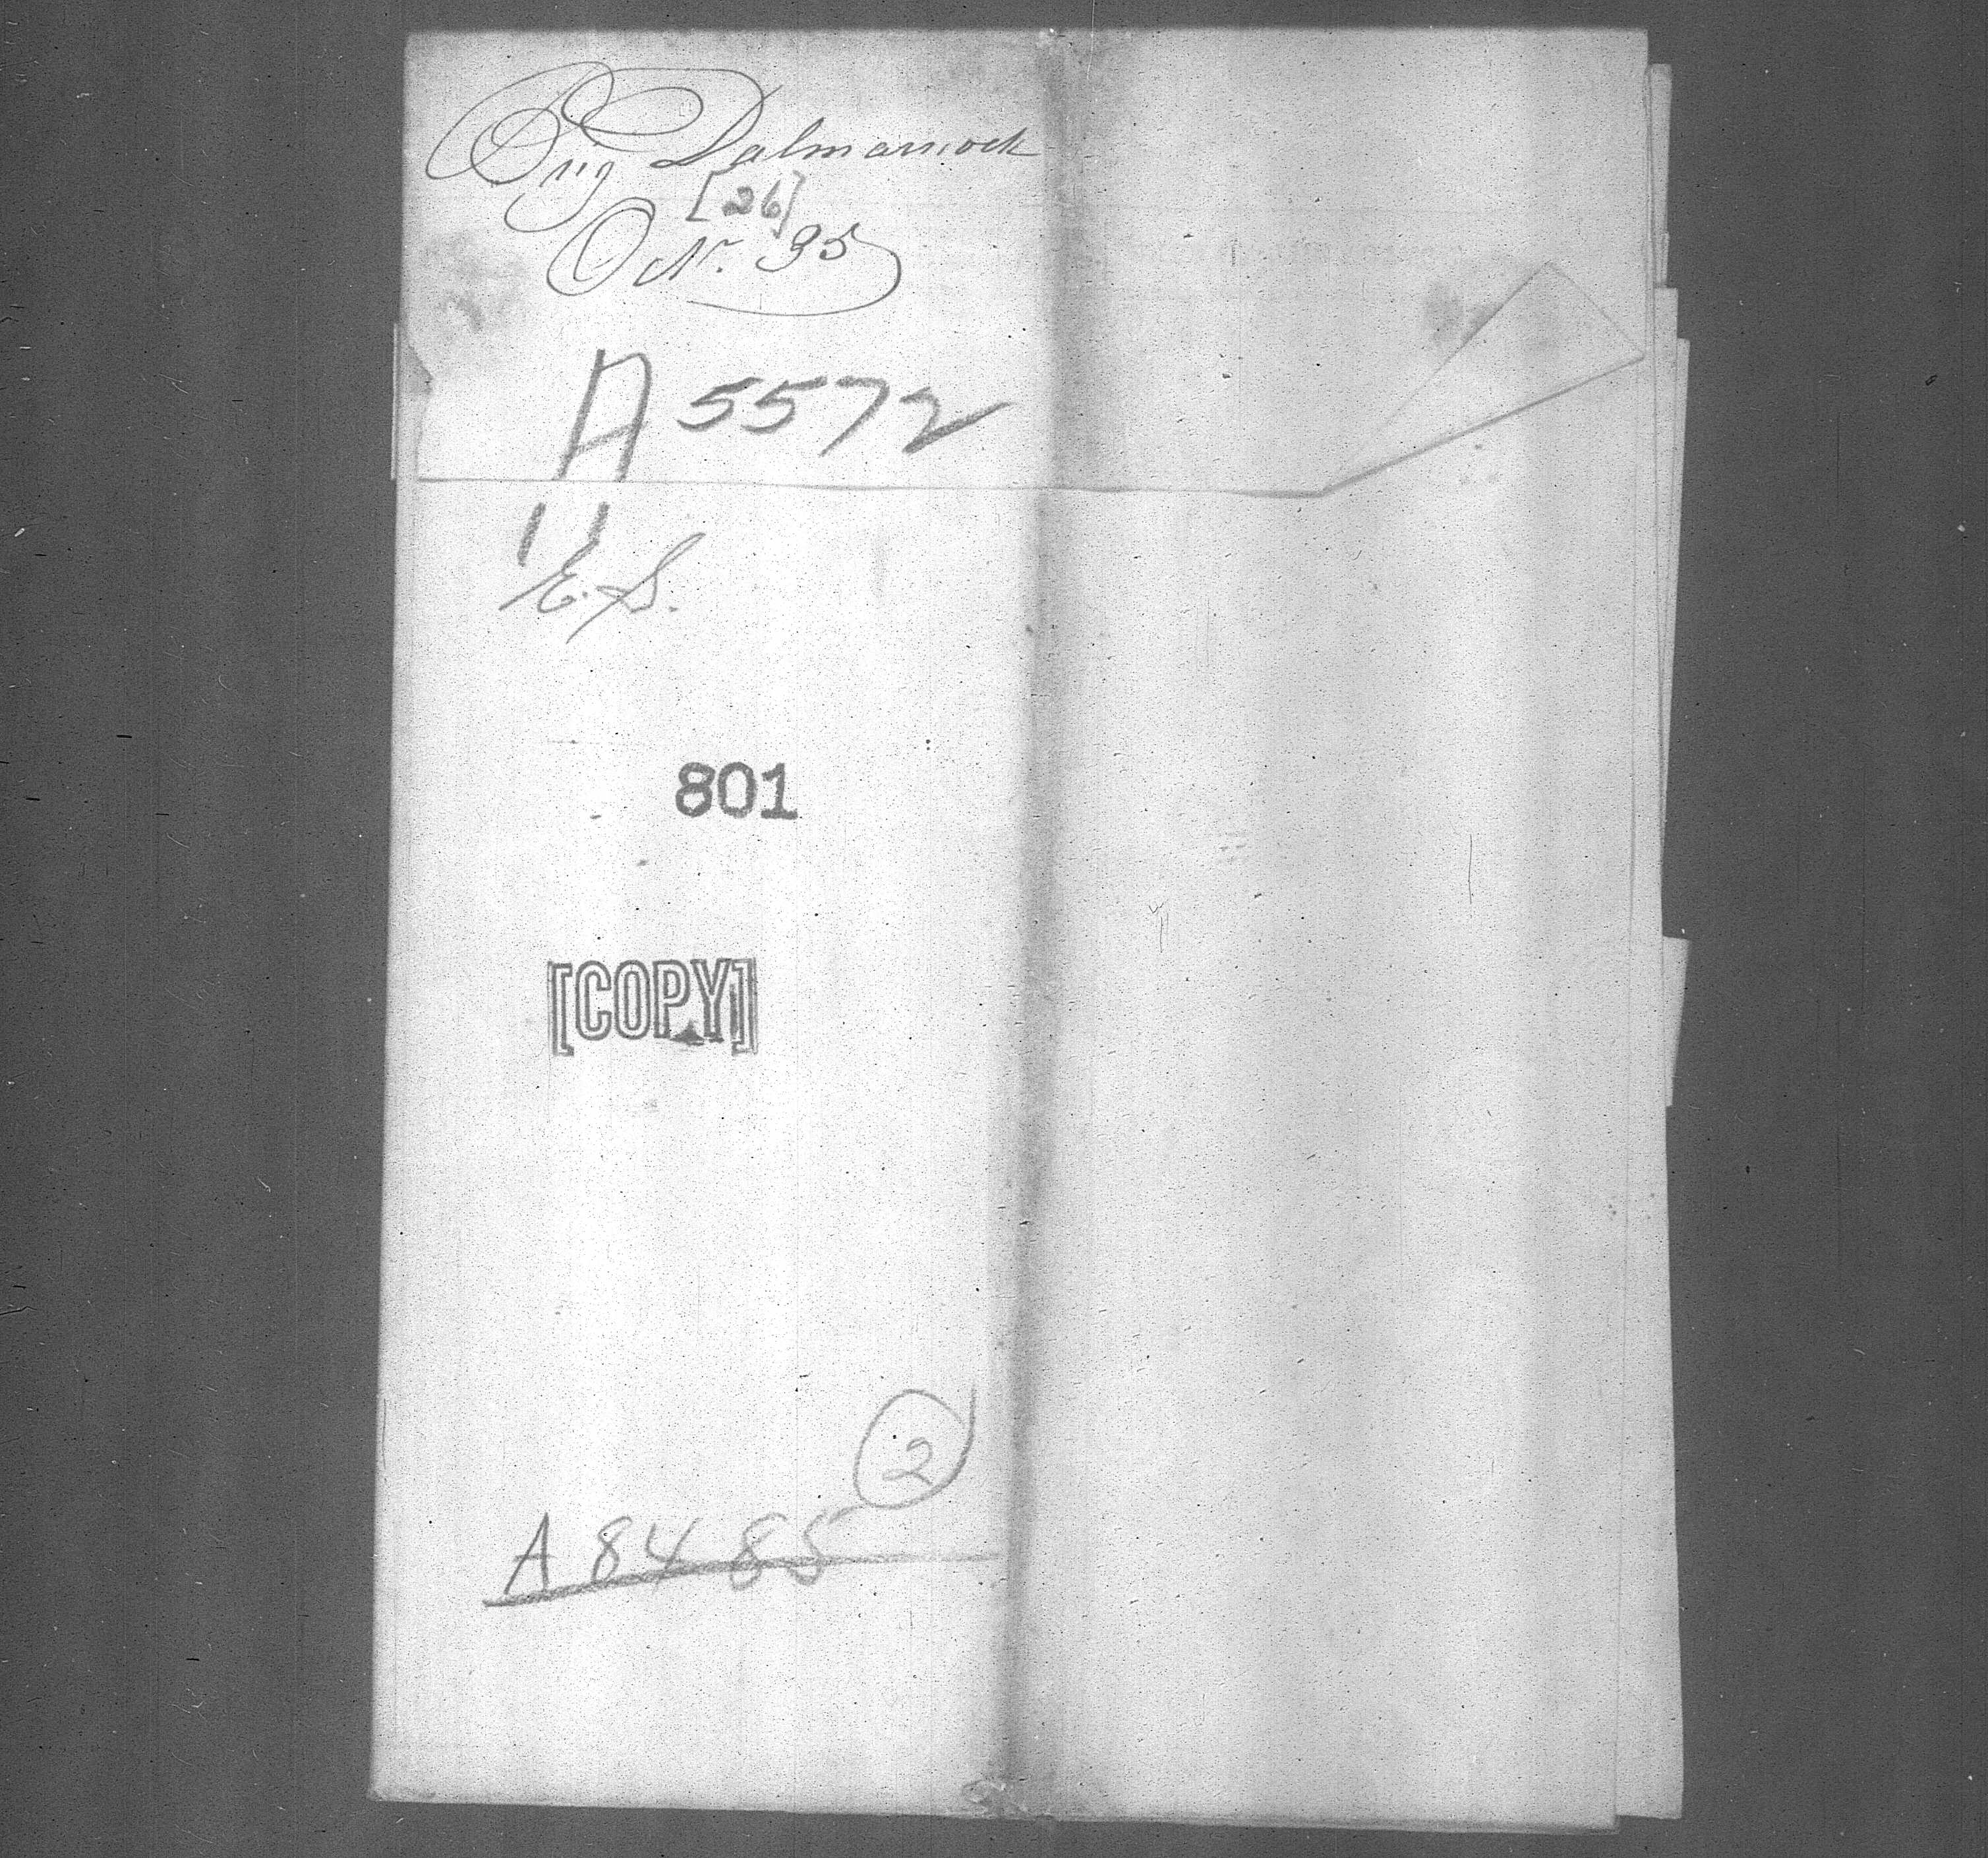 Brig Dalmarnock
[26]
Oct. 95
A 5572
11
E.S.
801
[COPY]
2
A 8485